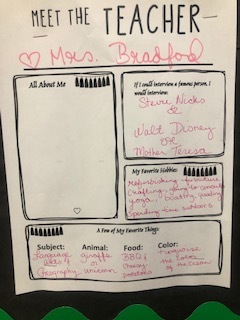 MEET THE TEACHER
Mrs. Bradford
All About Me
If I could interview a famous person, I
would interview:
Stevie Nicks
&
Walt Disney
or
Mother Teresa
My Favorite Hobbies:
Refurbishing furniture
Crafting, going to
yoga, boating, reading
Spending time outdoors
A Few of My Favorite Things
Subject: Animal: Food: Color:
Language giraffe BBQ & turquoise
Arts & or cheesy the color
Geography unicorn potatoes of the ocean